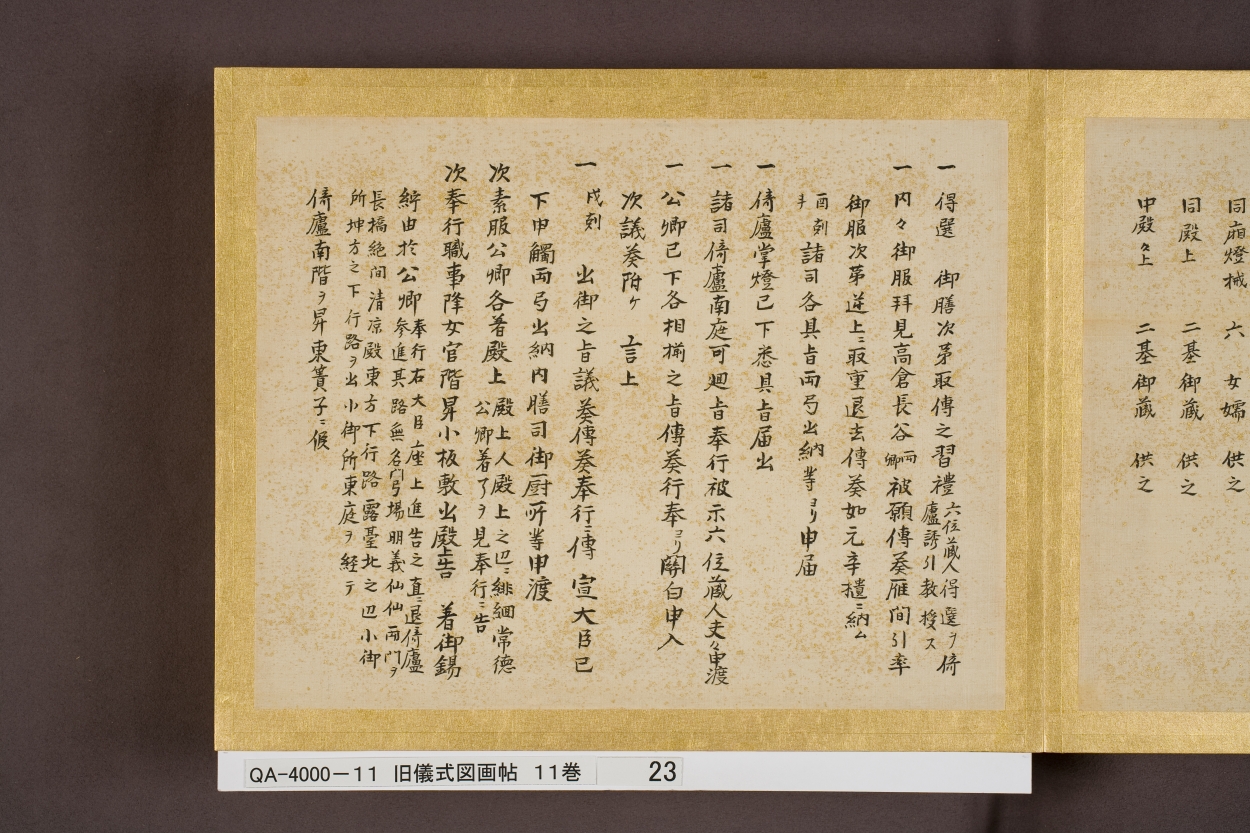 同廂燈械 六 女嬬 供之
同殿上 二基御蔵 供之
中殿々上 二基御蔵 供之
一 得選 御膳次第取傳之習禮六位蔵人得選ヲ倚
廬誘引教授ス
一 内々御服拜見高倉長谷両卿被願傳奏雁間引率
御服次第逆上ニ取重退去傳奏如元辛櫃ニ納ム
酉刻
諸司各具旨両弓出納等ヨリ申届
一 倚廬掌燈已下悉具旨届出
一 諸司倚廬南庭可廻旨奉行被示六位蔵人夫々申渡
一 公卿已下各相揃之旨傳奏行奉ヨリ關白申入
次議奏附ヶ 言上
一 戌刻 出御之旨議奏傳奏奉行ニ傳 宣大臣已
下申觸両弓出納内膳司御厨所等申渡
次素服公卿各著殿上殿上人殿上之辺ニ緋綑常德
公卿著了ヲ見奉行ニ告
次奉行職事降女官階昇小板敷出殿上告 着御錫
紵由於公卿奉行右大臣座上進告之直ニ退倚廬
参進其路無名門弓場明義仙仙両門ヲ
長橋絶間清凉殿東方下行路露臺北之辺小御
所坤方之下行路ヲ出小御所東庭ヲ経テ
倚廬南階ヲ昇東簀子ニ候
QA-4000-11 旧儀式図画帖 11巻 23